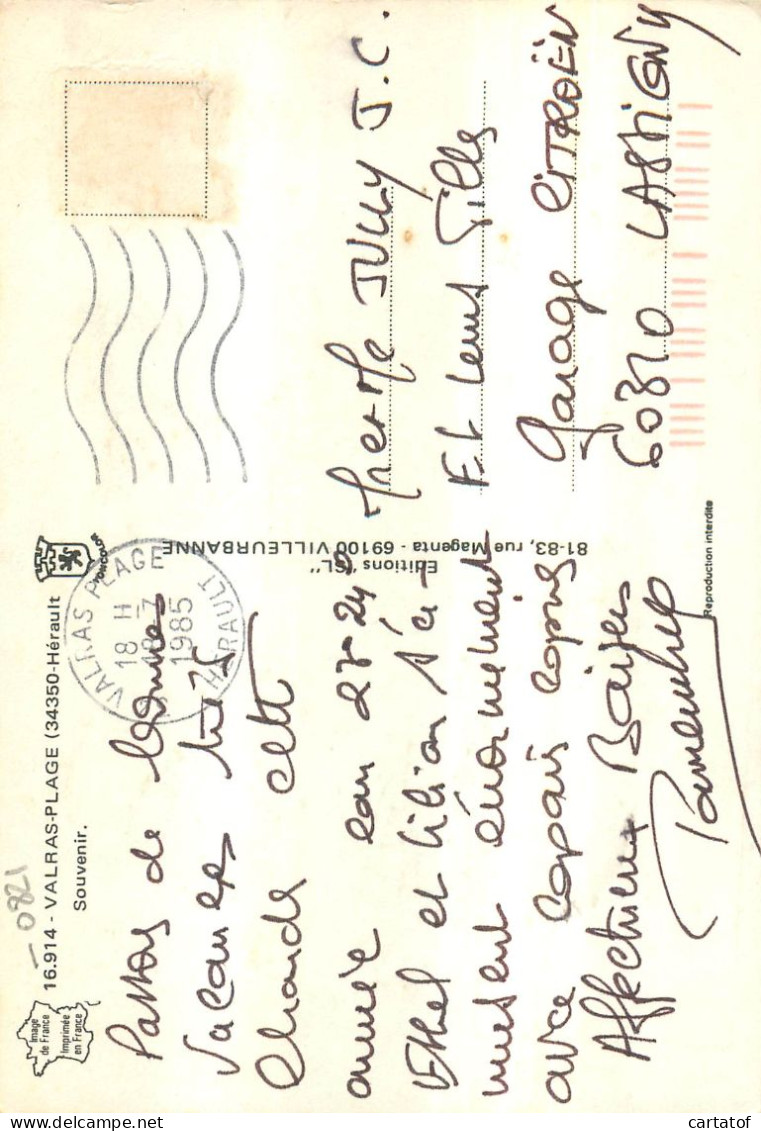 0821
16.914 - VALRAS-PLAGE (34350-Hérault
Souvenir.
Image
de France
Imprimée
en France
YONCOLOR
VALRAS PLAGE
18 H
18-7
1985
HERAULT
Passons de bonnes
vacances très
chaude cette
année eau 23-24°
Ethel et Lilian s'a-
musent énormément
avec copains copines
Affectueux Baisers
Editions "SL"
81-83, rue Magenta - 69100 VILLEURBANNE
Mr et Me JULLY J.C.
Et Leurs Filles
Garage CITROËN
60310 LASSIGNY
Reproduction interdite
cartatof